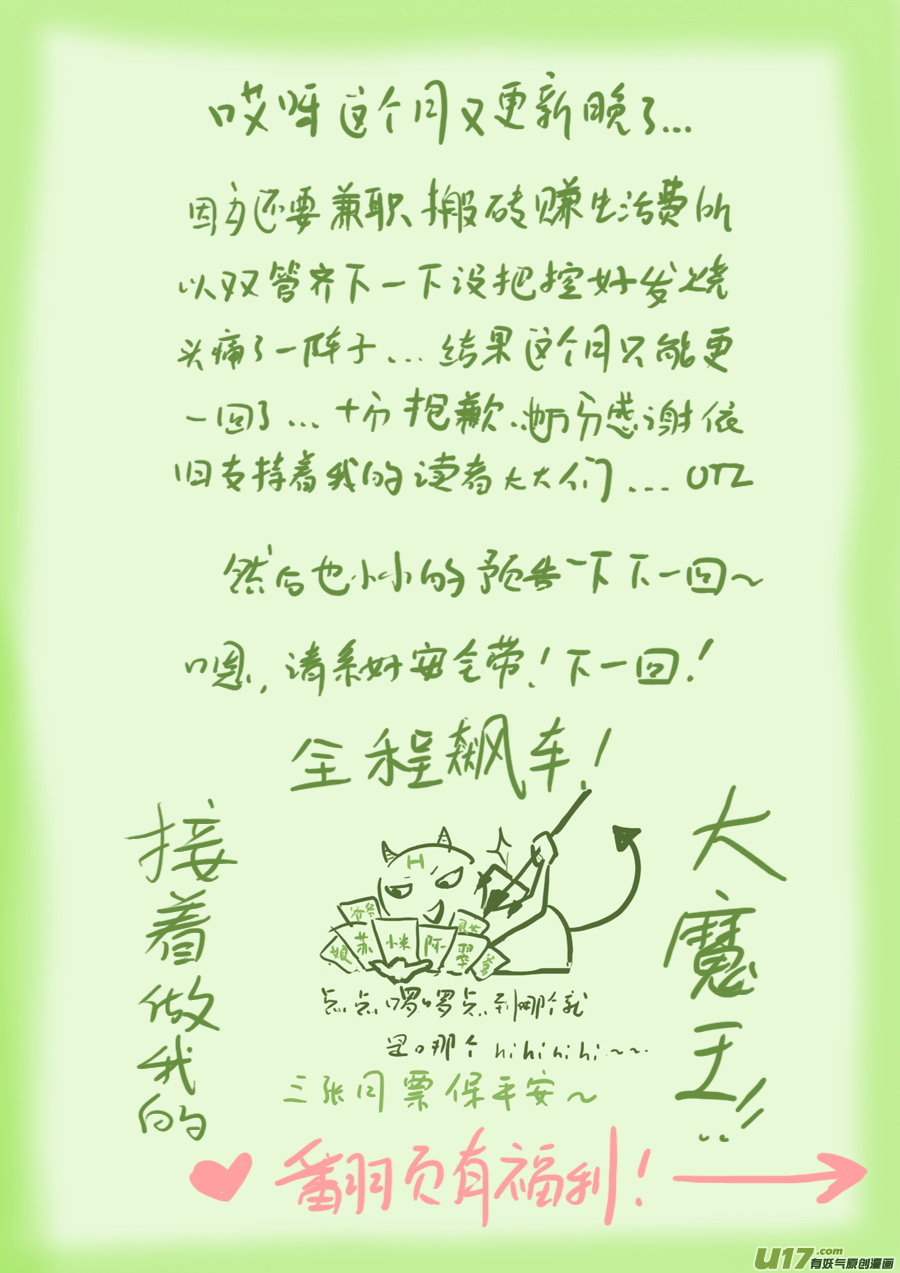 哎呀这个月又更新晚了...
因为还要兼职搬砖赚生活费所
以双管齐下一下没把控好发烧
头痛了一阵子...结果这个月只能更
一回了...十分抱歉..也万分感谢依
旧支持着我的读者大大们...OTZ
然后也小小的预告一下下一回~
嗯,请系好安全带!下一回!
全程飙车!
接着做我的
大魔王!!
H
爷爷
娘
苏
小米
阿一
翠
爹
点点啰啰点到哪个就
是哪个 hihihihi~~..
三张月票保平安~
翻页有福利!
U17.com
有妖气原创漫画